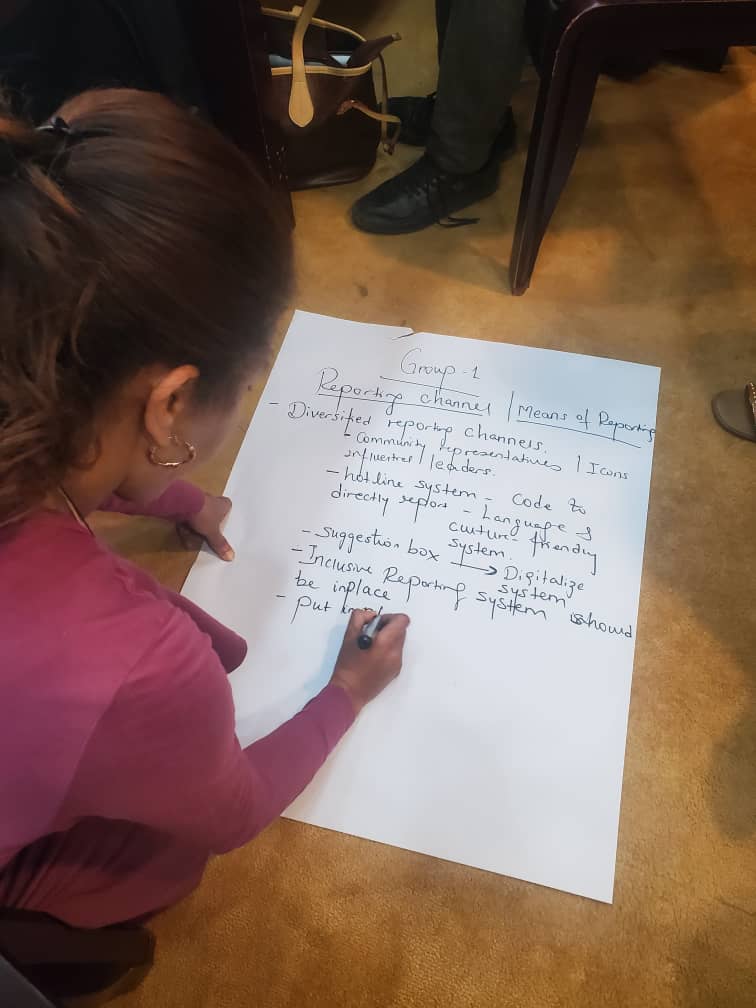 Group-1
Reporting channel | Means of Reporting
- Diversified reporting channels.
- Community representatives | Icons
influential / leaders.
- hotline system - Code to
directly report - Language &
culture-friendly
system.
- Suggestion box → Digitalize
system
- Inclusive Reporting system should
be inplace
- put